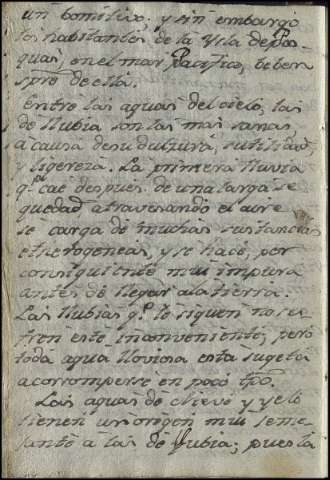 un bomitivo: y sin embargo
los habitantes de la Ysla de Pas-
quas, en el mar Pacifico, beben
spre de ella.
Entre las aguas del cielo, las
de llubia son las mas sanas
a causa de su dulzura, sutilidad,
y ligereza. La primera lluvia
q.e cae despues de una larga se-
quedad atravesando el aire
se carga de muchas sustancias
etherogeneas, y se hace, por
consiguiente mui impura
antes de llegar a la tierra.
Las llubias q.e le siguen no su-
fren este inconveniente, pero
toda agua lloviosa esta sugeta
a corromperse en poco tpo.
Las aguas de nieve y yelo
tienen un origen mui seme-
jante a las de llubia; pues la